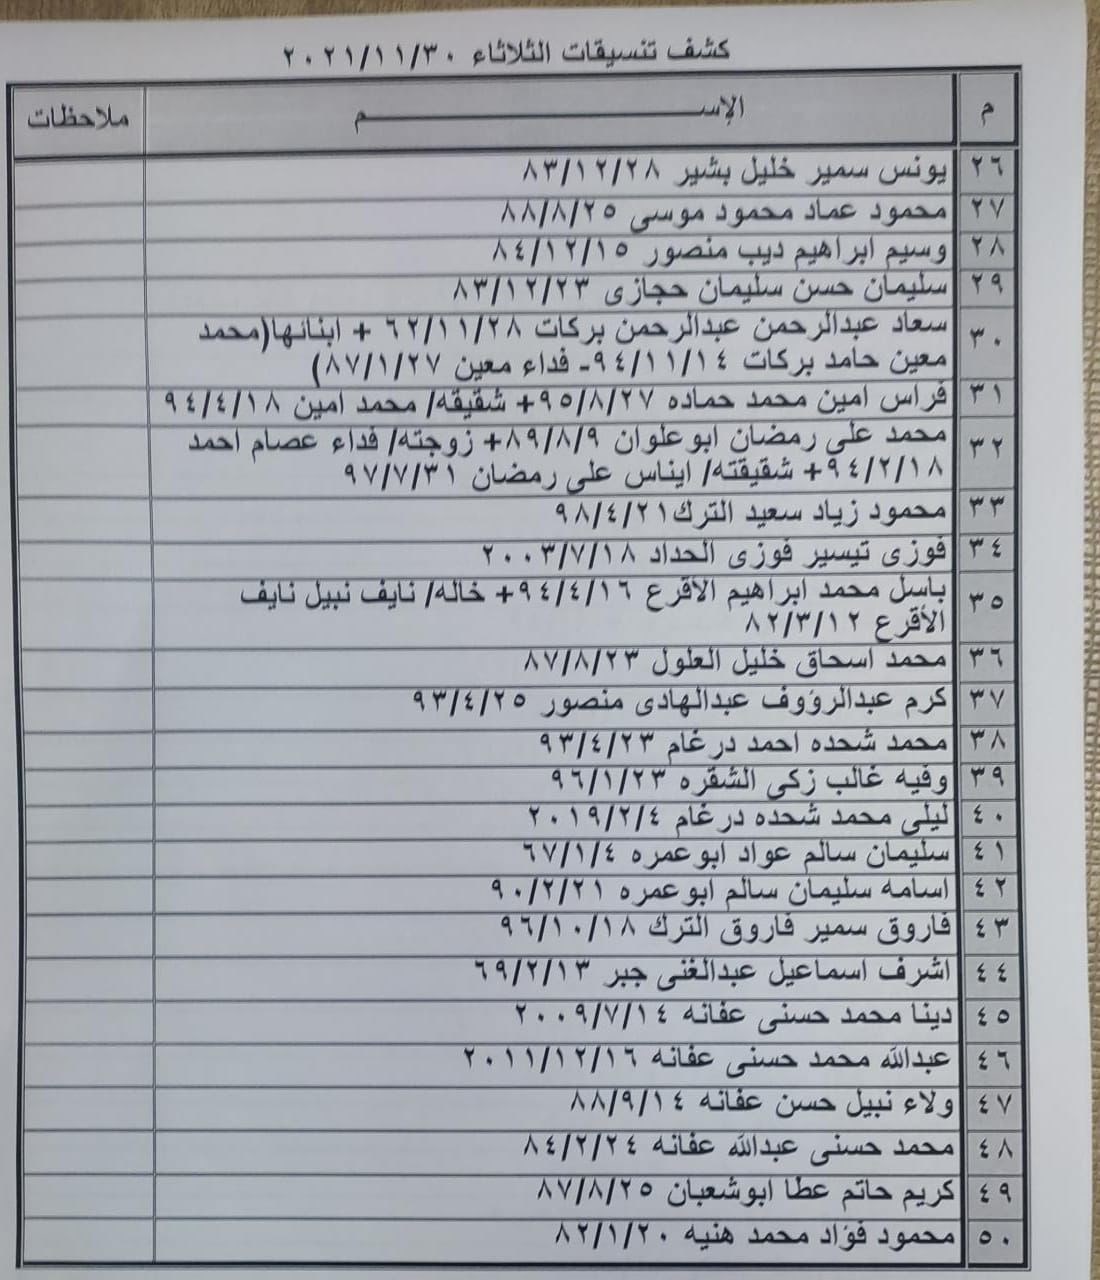 كشف تنسيقات الثلاثاء ٢٠٢١/١١/٣٠
م الإســـــــم ملاحظات
٢٦ يونس سمير خليل بشير ٨٣/١٢/٢٨
٢٧ محمود عماد محمود موسى ٨٨/٨/٢٥
٢٨ وسيم ابراهيم ديب منصور ٨٤/١٢/١٥
٢٩ سليمان حسن سليمان حجازى ٨٣/١٢/٢٣
٣٠ سعاد عبدالرحمن عبدالرحمن بركات ٦٢/١١/٢٨ + ابنائها(محمد
معين حامد بركات ٩٤/١١/١٤- فداء معين ٨٧/١/٢٧)
٣١ فراس امين محمد حماده ٩٥/٨/٢٧+ شقيقه/ محمد امين ٩٤/٤/١٨
٣٢ محمد على رمضان ابوعلوان ٨٩/٨/٩+ زوجته/ فداء عصام احمد
٩٤/٢/١٨+ شقيقته/ ايناس على رمضان ٩٧/٧/٣١
٣٣ محمود زياد سعيد الترك٩٨/٤/٢١
٣٤ فوزى تيسير فوزى الحداد ٢٠٠٣/٧/١٨
٣٥ باسل محمد ابراهيم الاقرع ٩٤/٤/١٦+ خاله/ نايف نبيل نايف
الأقرع ٨٢/٣/١٢
٣٦ محمد اسحاق خليل العلول ٨٧/٨/٢٣
٣٧ كرم عبدالرؤوف عبدالهادى منصور ٩٣/٤/٢٥
٣٨ محمد شحده احمد درغام ٩٣/٤/٢٣
٣٩ وفيه غالب زكى الشقره ٩٦/١/٢٣
٤٠ ليلى محمد شحده درغام ٢٠١٩/٢/٤
٤١ سليمان سالم عواد ابوعمره ٦٧/١/٤
٤٢ اسامه سليمان سالم ابوعمره ٩٠/٢/٢١
٤٣ فاروق سمير فاروق الترك ٩٦/١٠/١٨
٤٤ اشرف اسماعيل عبدالغنى جبر ٦٩/٢/١٣
٤٥ دينا محمد حسنى عفانه ٢٠٠٩/٧/١٤
٤٦ عبدالله محمد حسنى عفانه ٢٠١١/١٢/١٦
٤٧ ولاء نبيل حسن عفانه ٨٨/٩/١٤
٤٨ محمد حسنى عبدالله عفانه ٨٤/٢/٢٤
٤٩ كريم حاتم عطا ابوشعبان ٨٧/٨/٢٥
٥٠ محمود فؤاد محمد هنيه ٨٢/١/٢٠